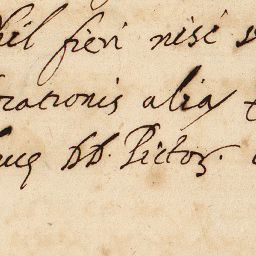 hil fieri nisi s
rationis alia
hh. Pictor.